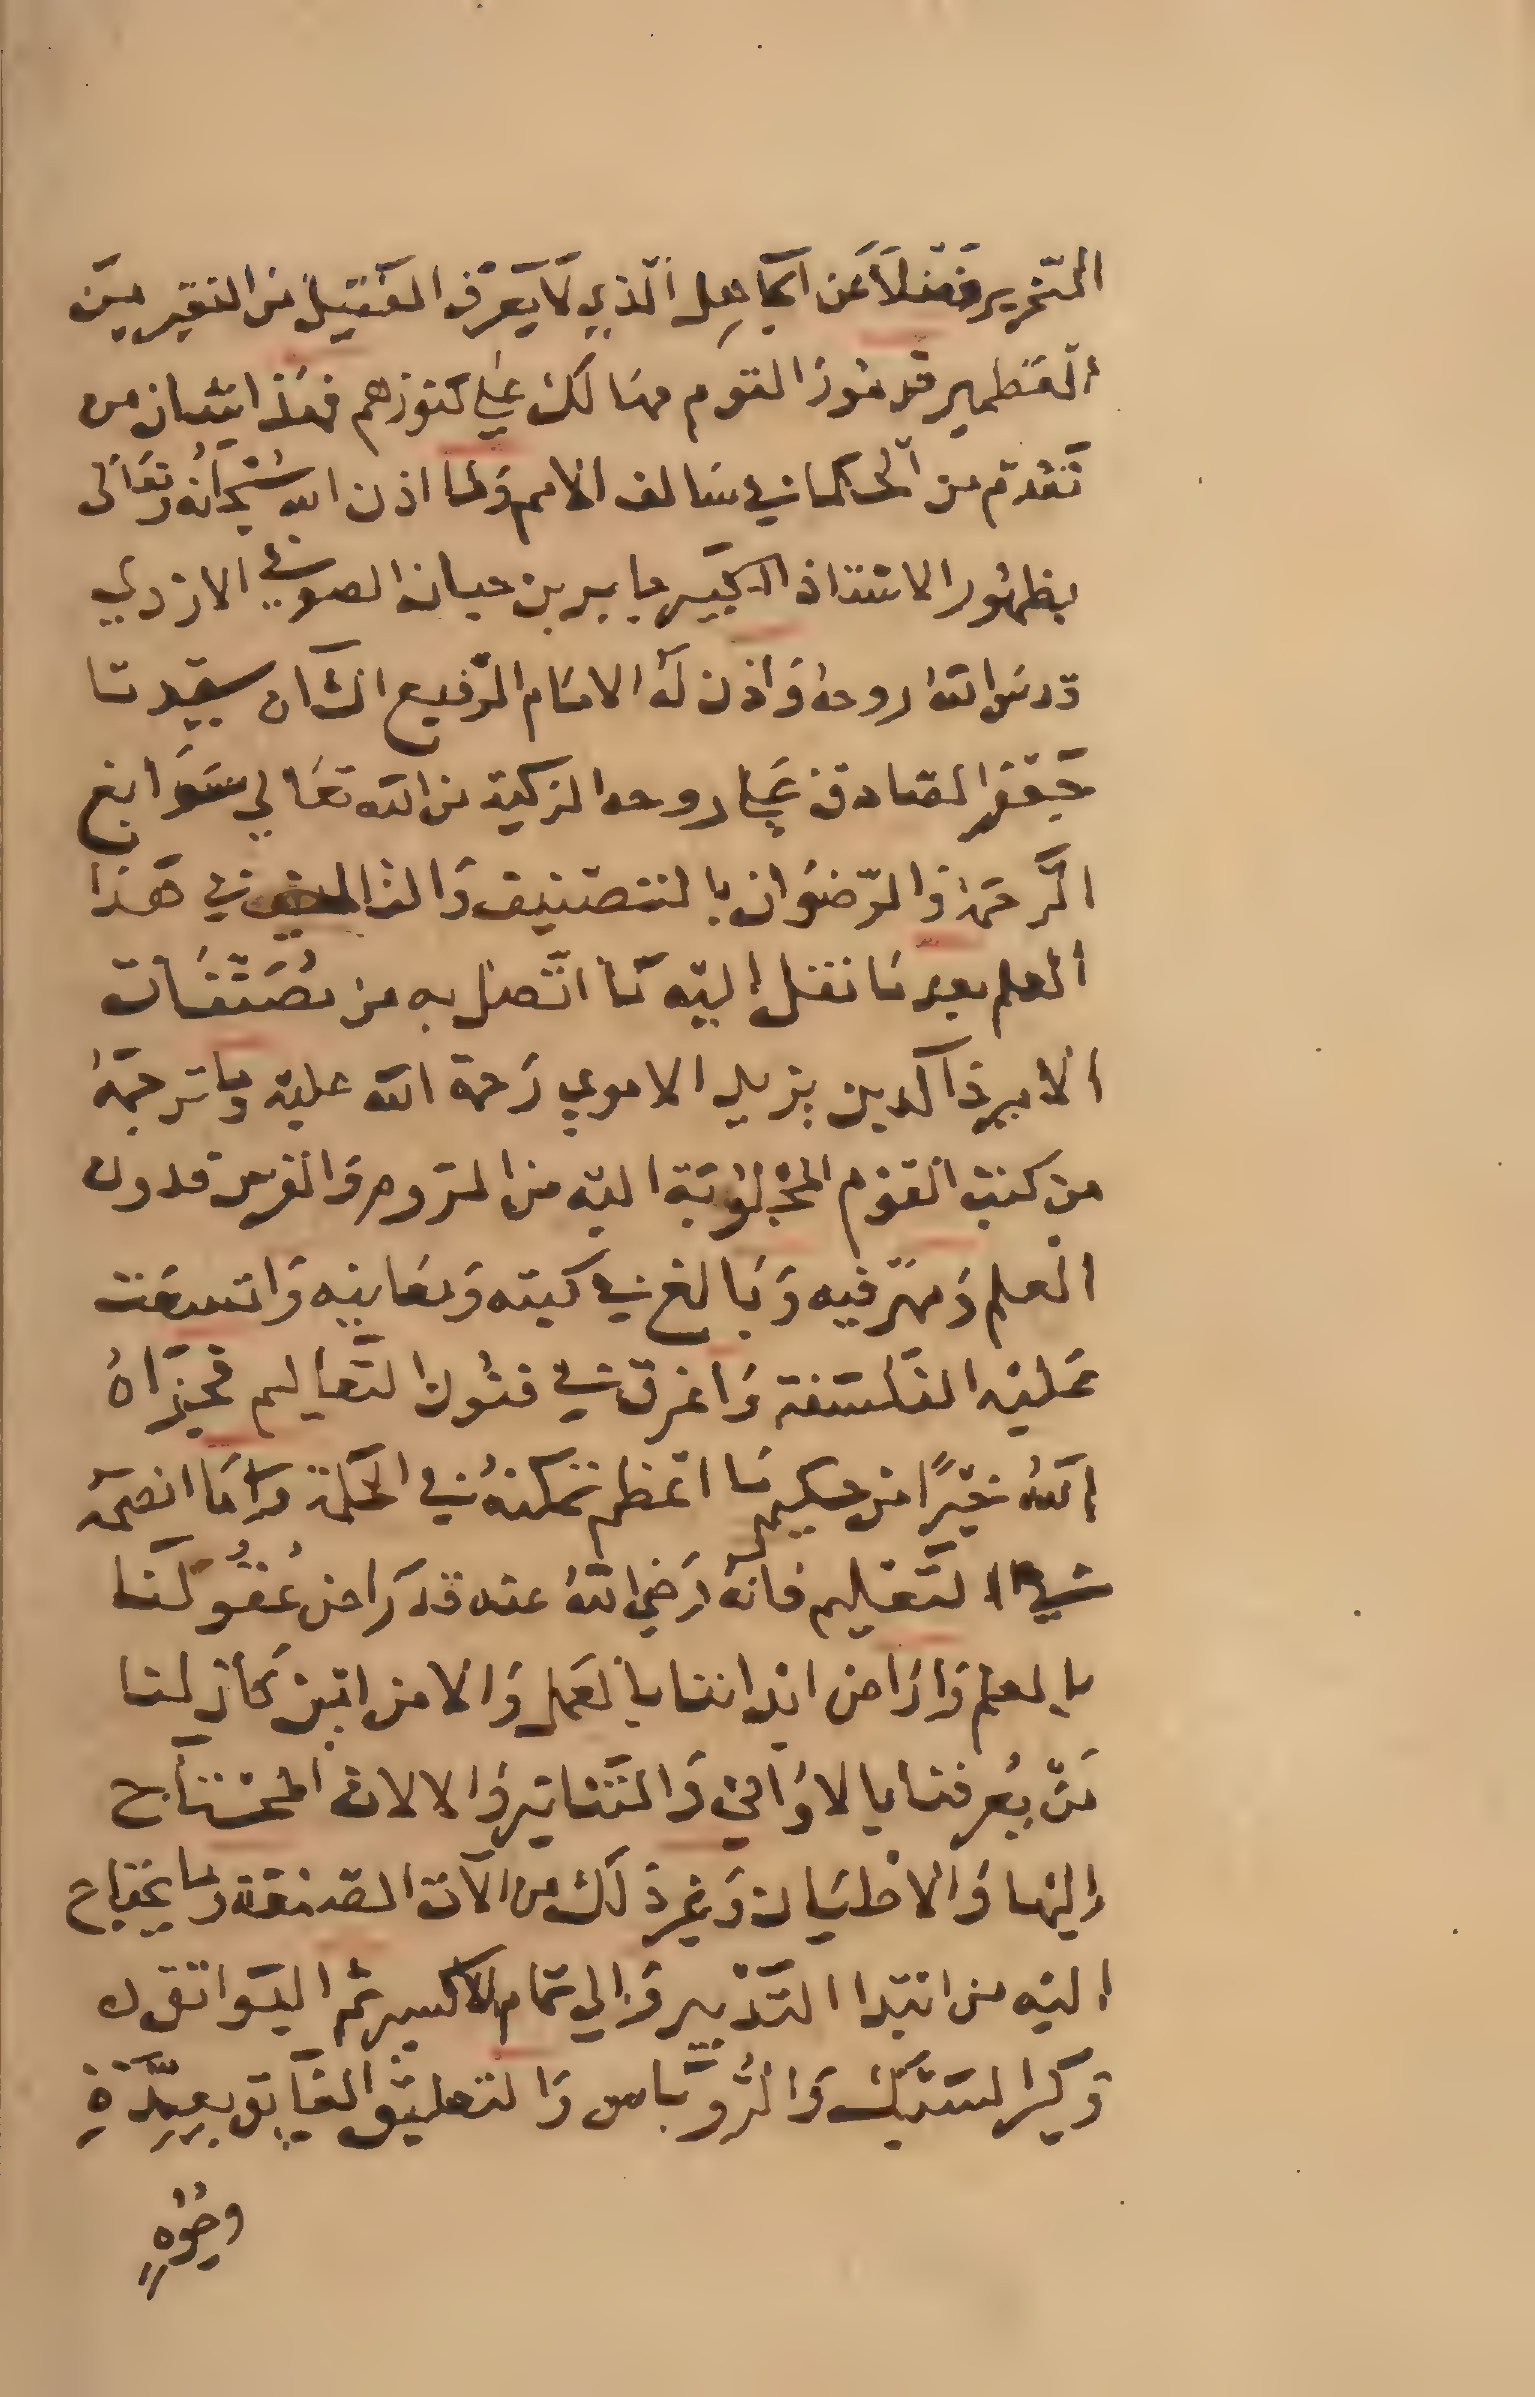 النحرير فَضْلاً عَن الجاهِل الّذي لاَ يَعرَف الفَتِيل من النقير مِن
القطمير فرموز القوم مهَالك علي كنوزهم فهَذا شان من
تَقدم من الحكما في سَالف الامم وَلما اذن الله سُبْحَانُه وَتعَالى
بظهُور الاستاذ الكَبير جابر بن حيان الصوفي الازدي
قدسَ اللهُ روحهُ وَاذن لهُ الامَام الرّفيع الشان سيدنا
جَعْفر الصَادق عَلي روحه الزكية من الله تعَالي سَوَابغ
الرَّحمَة وَالرّضوَان بالتصنيف وَالتاليف في هَذا
العلم بعد مَا نقل اليْه مَا اتّصَل به من مُصَنّفَات
الامير خالد بن يزيد الاموي رَحمة الله عليْه وما ترجمَهُ
من كتب القوْم المجْلُوبَة اليْه من الرّوم وَالفرس فدون
العلم وَمهَر فيه وَبَالغ في كميته وَمعَانيه وَاتسعَت
عَليْه الفلسَفة وَاغرق في فنُون التّعاليم فجزَاهُ
اللهُ خيْرًا من حكيم مَا اعْظم تمكنهُ في الحكمة وَمَا انصحَهُ
في التّعْليم فانهُ رَضي اللهُ عنه قد رَاض عُقُولنَا
بالعلم وَارَاض ابداننا بالعَمل وَالا من ايْن كان لنا
مَنْ يُعرفنا بالاوَاني وَالتّنَانير وَالالات المحْتاج
اليْها وَالاطيَان وَغير ذلك من آلات الصّنعَة وَما يحْتاج
اليْه من ابْتدا التَّدْبير وَالي تمام الاكسير ثم اليَواقت
ذكر السَبْك وَالرُّوبَاس وَالتعليْق الفَايق بعِدَّةِ
وجُوْهٍ